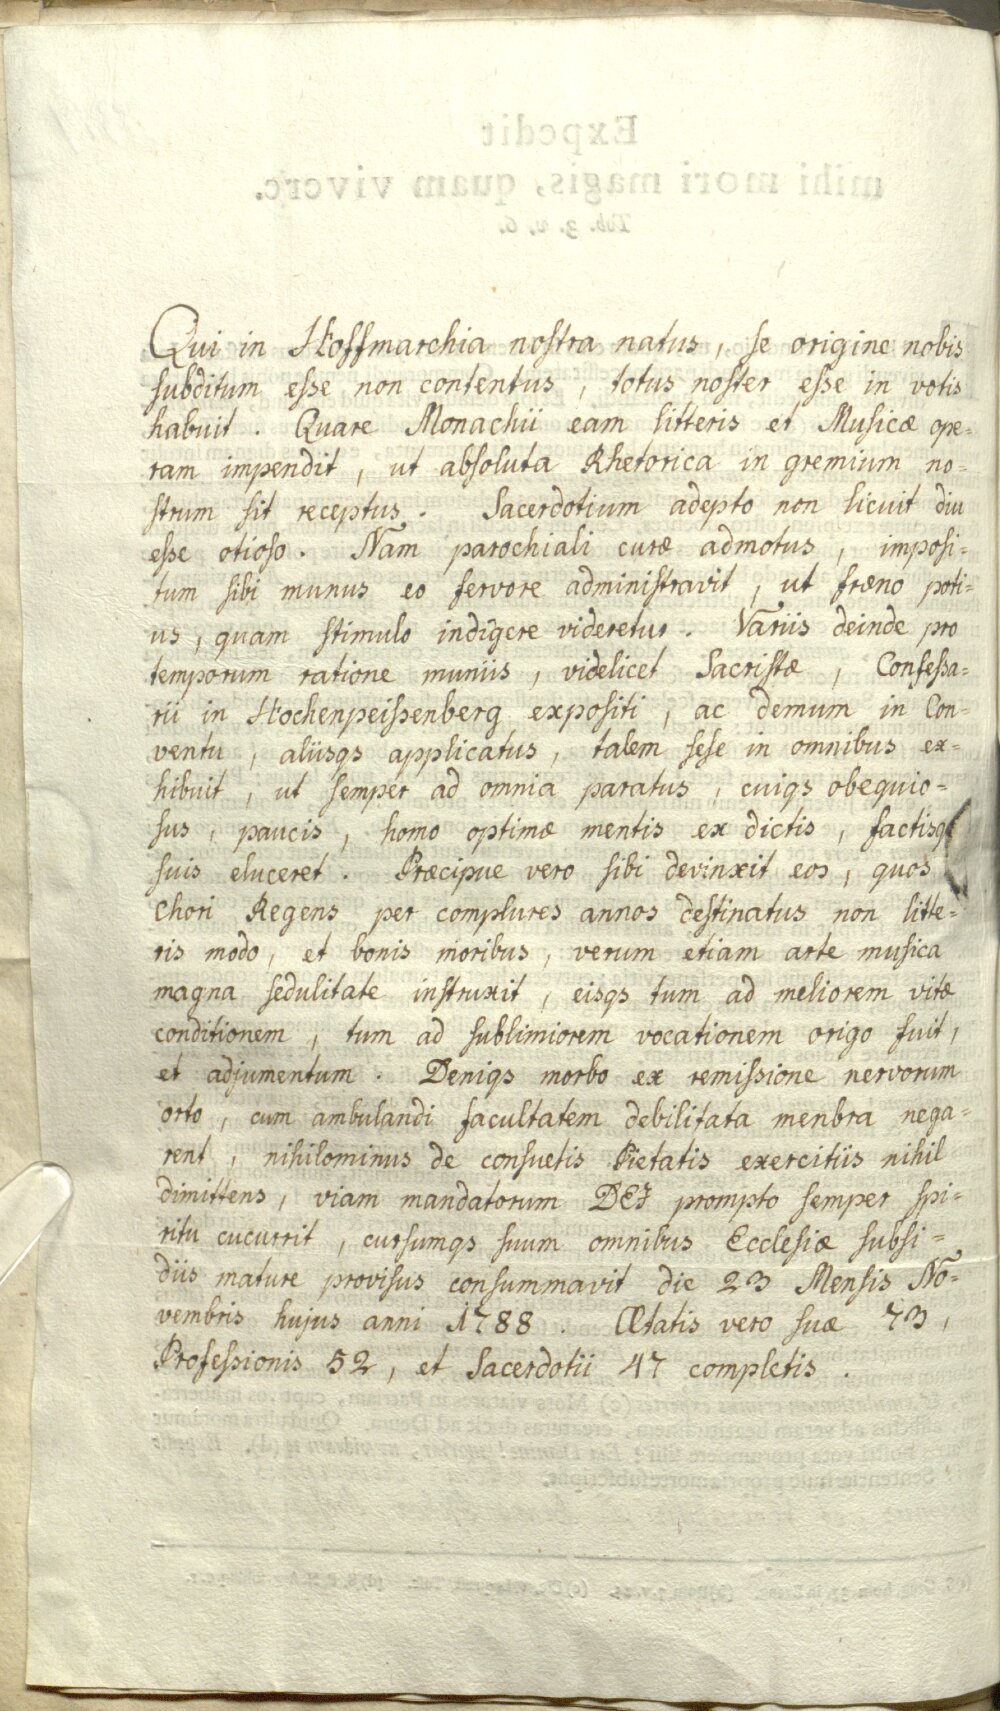 Qui in Hoffmarchia nostra natus, se origine nobis
subditum esse non contentus, totus noster esse in votis
habuit. Quare Monachii eam litteris et Musicæ ope-
ram impendit, ut absoluta Rhetorica in gremium no-
strum sit receptus. Sacerdotium adepto non licuit diu
esse otioso. Nam parochiali curæ admotus, imposi-
tum sibi munus eo fervore administravit, ut fræno poti-
us, quam stimulo indigere videretur. Variis deinde pro
temporum ratione muniis, videlicet Sacristæ, Confessa-
rii in Hochenpeissenberg expositi, ac demum in Con-
ventu, aliisqs applicatus, talem sese in omnibus ex-
hibuit, ut semper ad omnia paratus, cuiqs obequio-
sus, paucis, homo optimæ mentis ex dictis, factisqs
suis eluceret. Præcipue vero sibi devinxit eos, quos
Chori Regens per complures annos destinatus non litte-
ris modo, et bonis moribus, verum etiam arte musica
magna sedulitate instruxit, eisqs tum ad meliorem vitæ
conditionem, tum ad sublimiorem vocationem origo fuit,
et adjumentum. Deniqs morbo ex remissione nervorum
orto, cum ambulandi facultatem debilitata menbra nega-
rent, nihilominus de consuetis Pietatis exercitiis nihil
dimittens, viam mandatorum DEI prompto semper spi-
ritu cucurrit, cursumqs suum omnibus Ecclesiæ subsi-
diis mature provisus consummavit die 23 Mensis No-
vembris hujus anni 1788. Ætatis vero suæ 73,
Professionis 52, et Sacerdotii 47 completis.